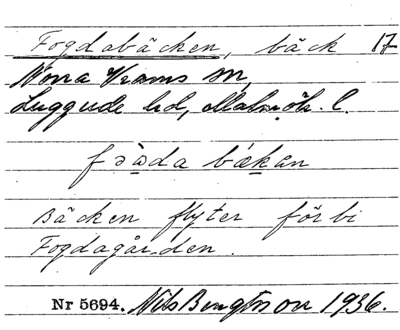 Fogdabäcken, bäck 17
Norra Vrams sn,
Luggude hd, Malmöh. l.
bäkan
Bäcken flyter förbi
Fogdagården.
Nr 5694. Nils Bengtsson 1936.